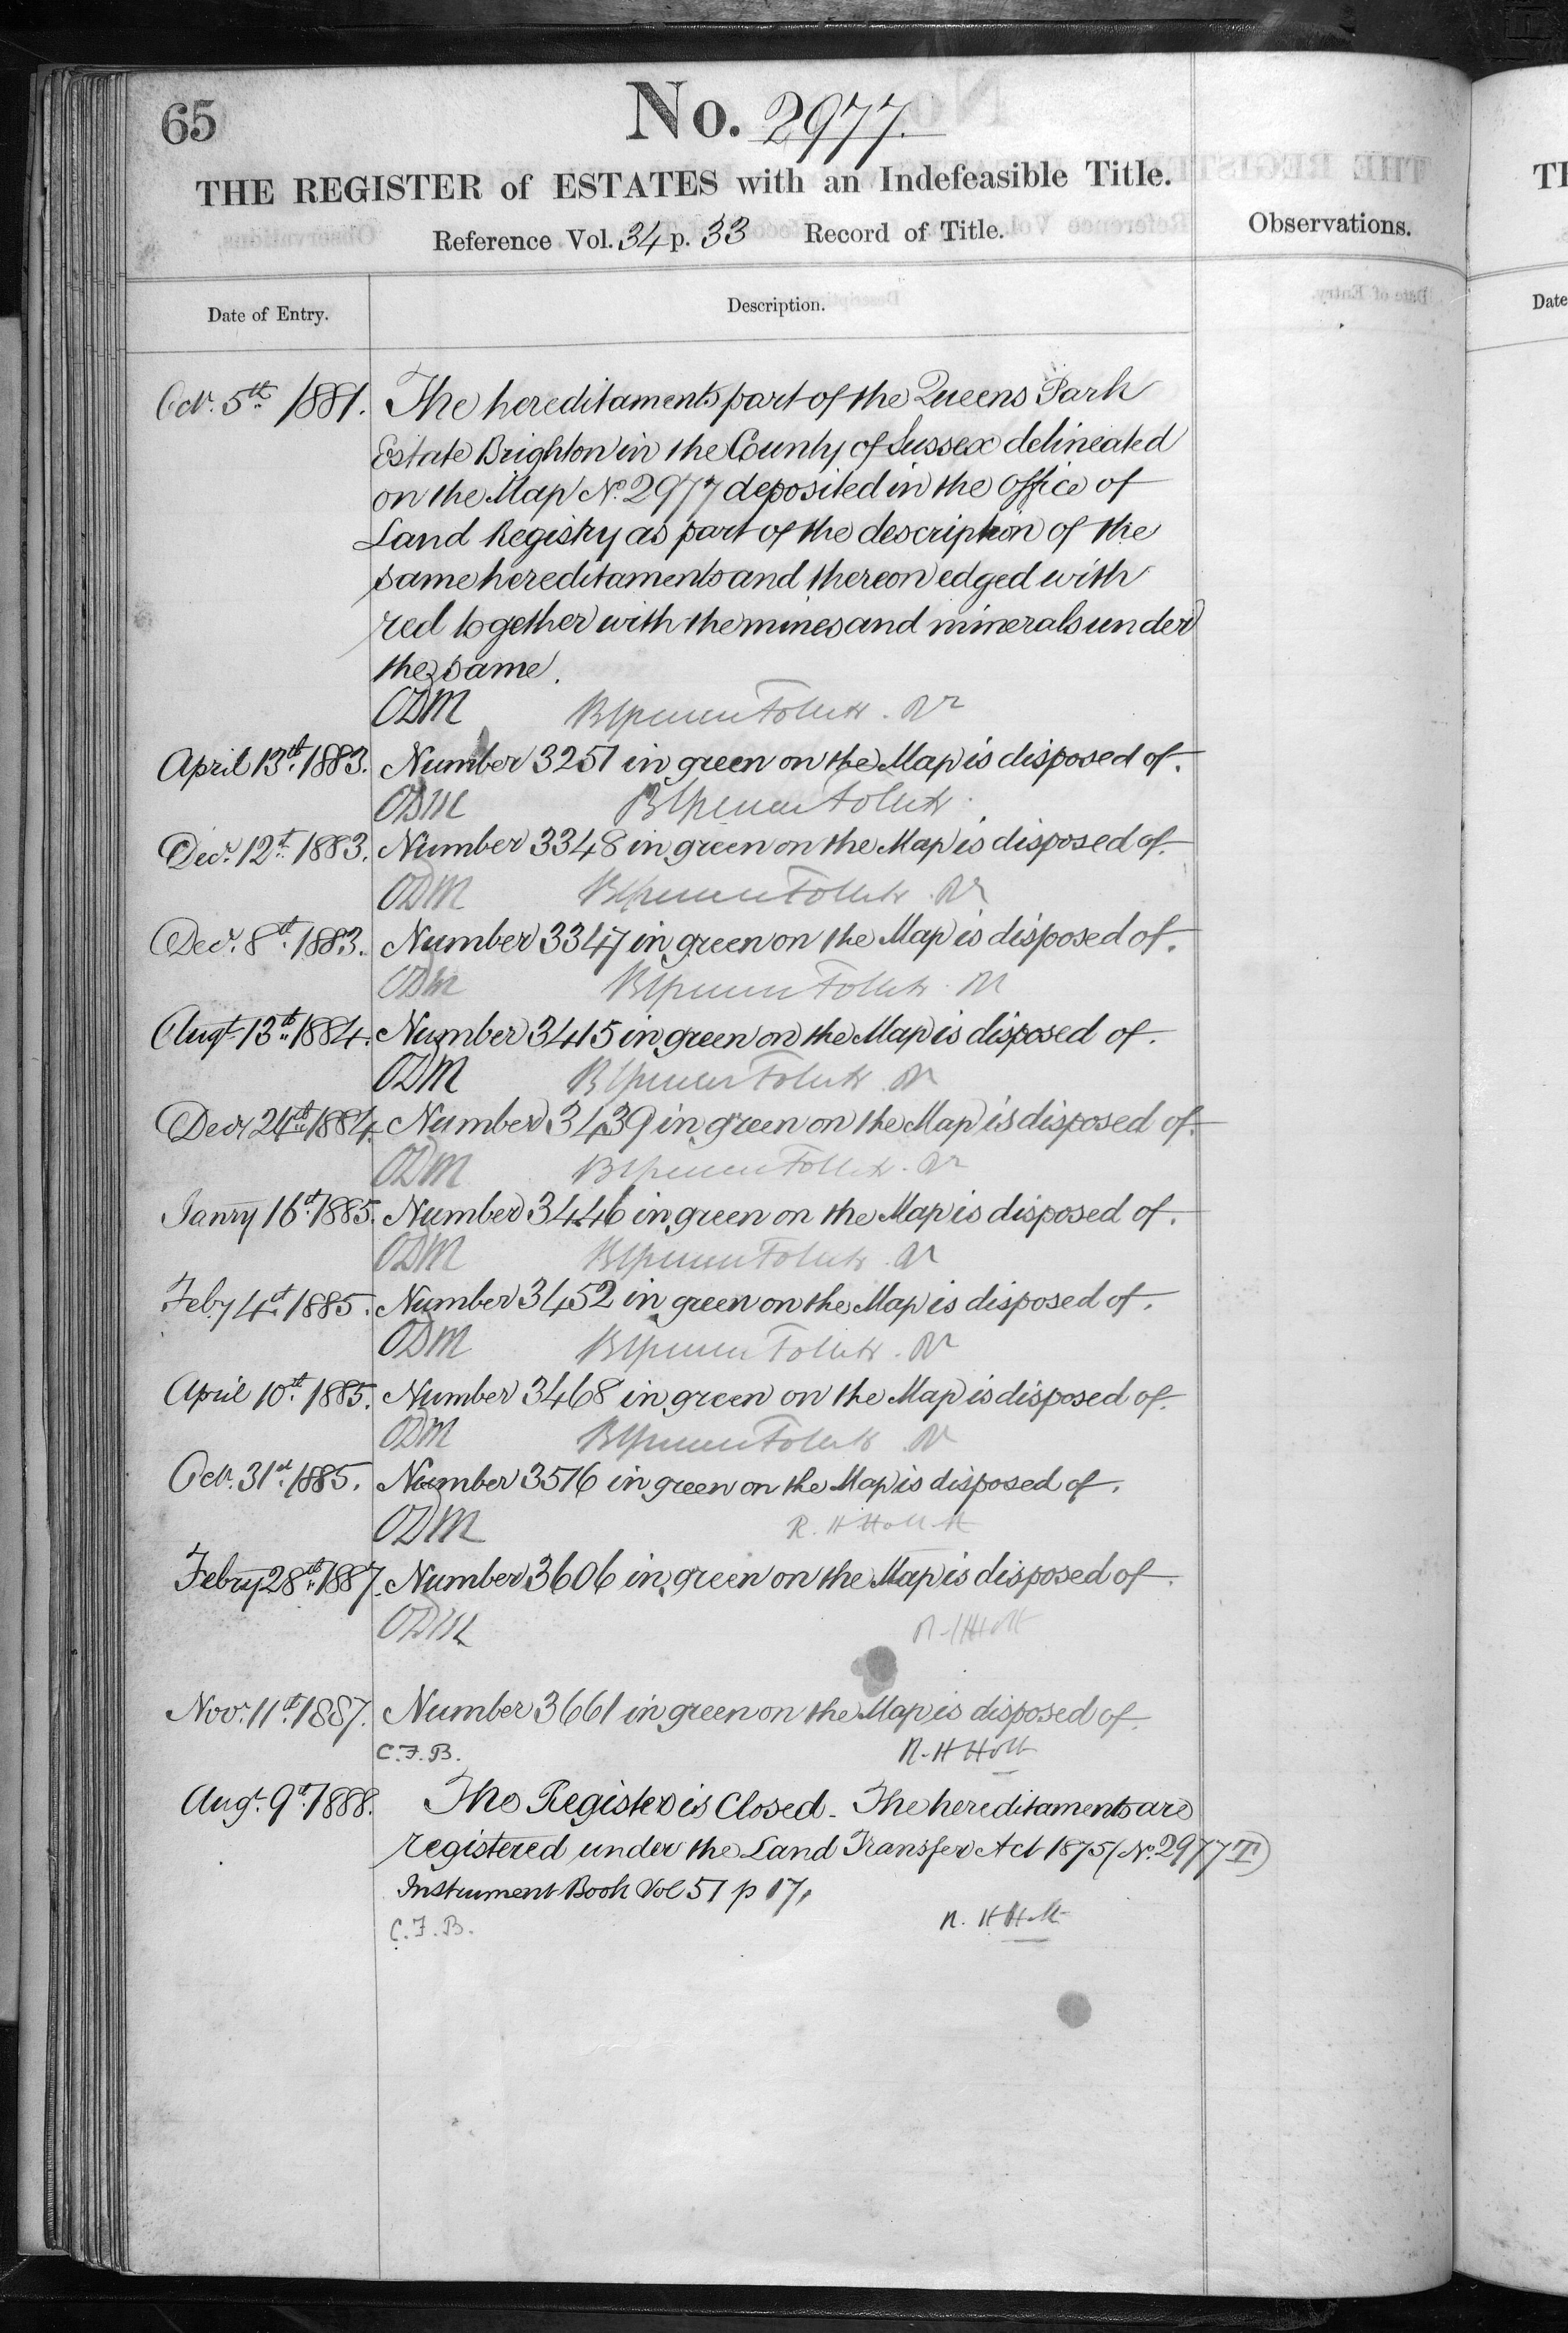 65
No. 2977.
THE REGISTER of ESTATES with an Indefeasible Title.
Reference Vol. 34 p. 33 Record of Title.
Observations.
Date of Entry.
Description.
Octr. 5th 1881. The hereditaments part of the Queens Park
Estate Brighton in the County of Sussex delineated
on the Map No. 2977 deposited in the office of
Land Registry as part of the description of the
same hereditaments and thereon edged with
red together with the mines and minerals under
the same.
ODM
April 13th 1883. Number 3251 in green on the Map is disposed of.
ODM
Decr. 12th 1883. Number 3348 in green on the Map is disposed of.
ODM
Decr. 8th 1883. Number 3347 in green on the Map is disposed of.
ODM
Augt 13th 1884. Number 3415 in green on the Map is disposed of.
ODM
Decr 24th 1884. Number 3439 in green on the Map is disposed of.
ODM
Janry 16th 1885. Number 3446 in green on the Map is disposed of.
ODM
Feby 4th 1885. Number 3452 in green on the Map is disposed of.
ODM
April 10th 1885. Number 3468 in green on the Map is disposed of.
ODM
Octr. 31st 1885. Number 3516 in green on the Map is disposed of.
ODM
Febry 28th 1887. Number 3606 in green on the Map is disposed of.
ODM
Novr. 11th 1887. Number 3661 in green on the Map is disposed of.
C.F.B. R. H Holt
Augt. 9th 1888. The Register is Closed - The hereditaments are
registered under the Land Transfer Act 1875 (No. 2977 T)
Instrument Book Vol 51 p 17.
C.F.B. R. H Holt
TI
Date